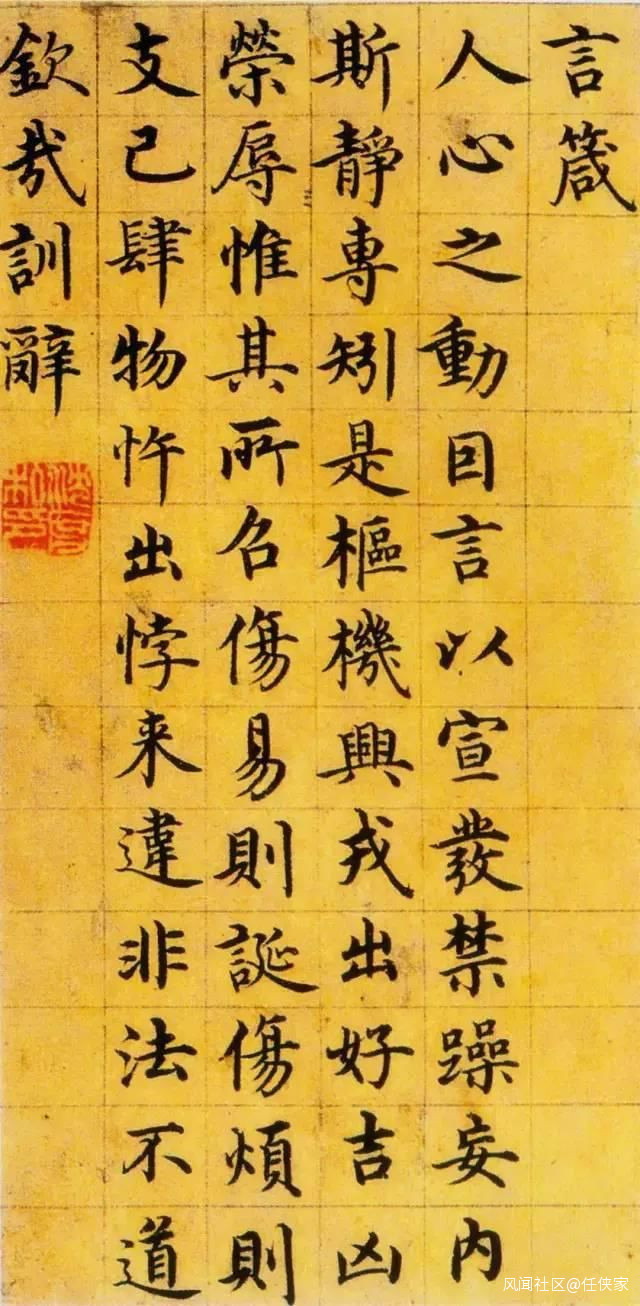 言箴
人心之動因言以宣發禁躁妄內
斯靜專矧是樞機興戎出好吉凶
榮辱惟其所召傷易則誕傷煩則
支己肆物忤出悖来違非法不道
欽哉訓辭
风闻社区@任侠家